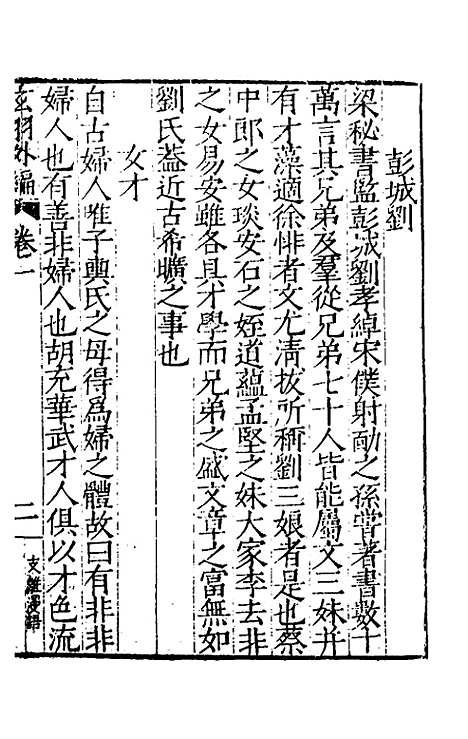 彭城劉
梁秘書監彭城劉孝綽宋僕射勔之孫嘗著書數十
萬言其兄弟及羣從兄弟七十人皆能屬文三妹并
有才藻適徐悱者文尤清拔所稱劉三娘者是也蔡
中郎之女琰安石之姪道蘊孟堅之妹大家李去非
之女易安雖各具才學而兄弟之盛文章之富無如
劉氏益近古希曠之事也
女才
自古婦人唯子輿氏之母得爲婦之體故曰有非非
婦人也有善非婦人也胡充華武才人俱以才色流
玄羽外編 卷二 二 支離漫語